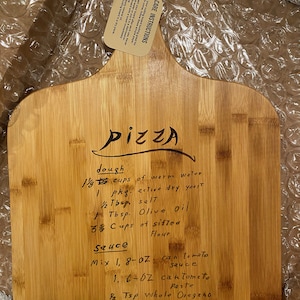 CARE INSTRUCTIONS
PIZZA
dough
1½ cups of warm water
1 pkg. active dry yeast
½ Tbsp. salt
1 Tbsp Olive Oil
Cups of sifted
Flour
sauce
Mix 1, 8-oz. can tomato
sauce
1, 6-oz can tomato
Paste
Tsp Whole Oregano